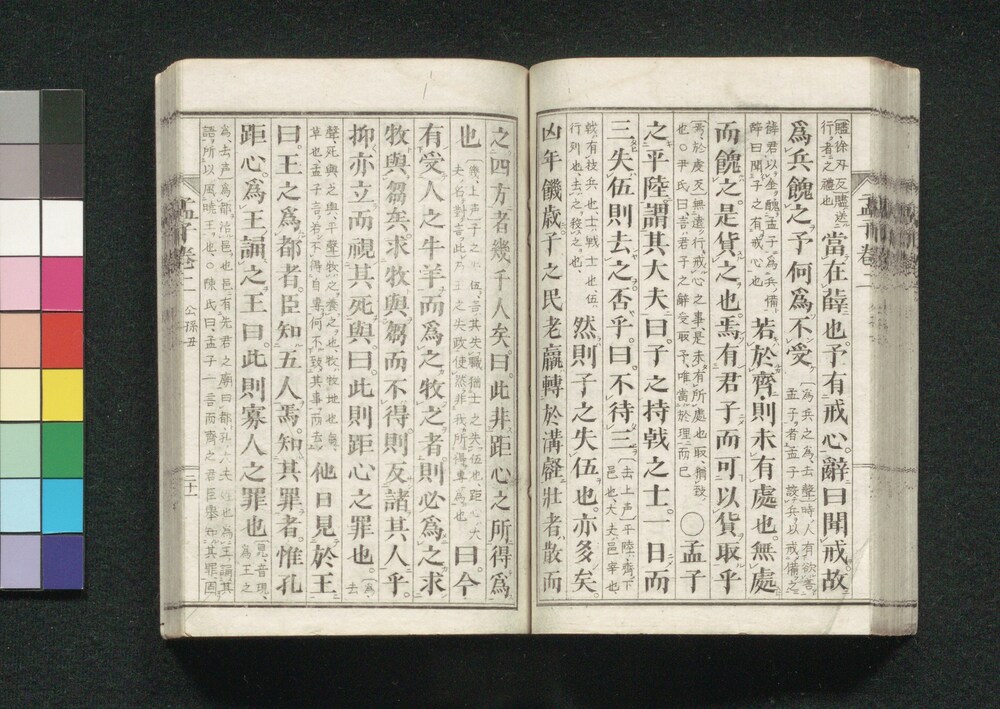 贐徐刃反贐送行者之禮也 當在薛也予有戒心辭曰聞戒故
爲兵餽之予何爲不受 爲兵之爲去聲時人有欲害孟子者孟子設兵以戒備之
薛君以金餽孟子爲兵備辭曰聞子之有戒心也 若於齊則未有處也無處
而餽之是貨之也焉有君子而可以貨取乎
焉於虔反無遠行戒心之事是未有所處也取猶致也○尹氏曰言君子之辭受取予唯當於理而已 ○孟子
之平陸謂其大夫曰子之持戟之士一日而
三失伍則去之否乎曰不待三 去上声平陸齊下邑也大夫邑宰也
戟有枝兵也士戰士也伍行列也去之殺之也 然則子之失伍也亦多矣
凶年饑歲子之民老羸轉於溝壑壯者散而
孟子卷二
孟子卷二
公孫丑
之四方者幾千人矣曰此非距心之所得爲
也 幾上声子之 伍言其失職猶士之失伍也距心大夫名對言此乃王之失政使然非我所得專爲也 曰今
有受人之牛羊而爲之牧之者則必爲之求
牧與芻矣求牧與芻而不得則反諸其人乎
抑亦立而視其死與曰此則距心之罪也 爲去
聲死與之與平聲牧之養之也牧牧地也芻草也孟子言若不得自專何不致其事而去 他日見於王
曰王之爲都者臣知五人焉知其罪者惟孔
距心爲王誦之王曰此則寡人之罪也 見音現爲王之
爲去声爲都治邑也邑有先君之廟曰都孔大夫姓也爲王誦其語所以風曉王也○陳氏曰孟子一言而齊之君臣舉知其罪固